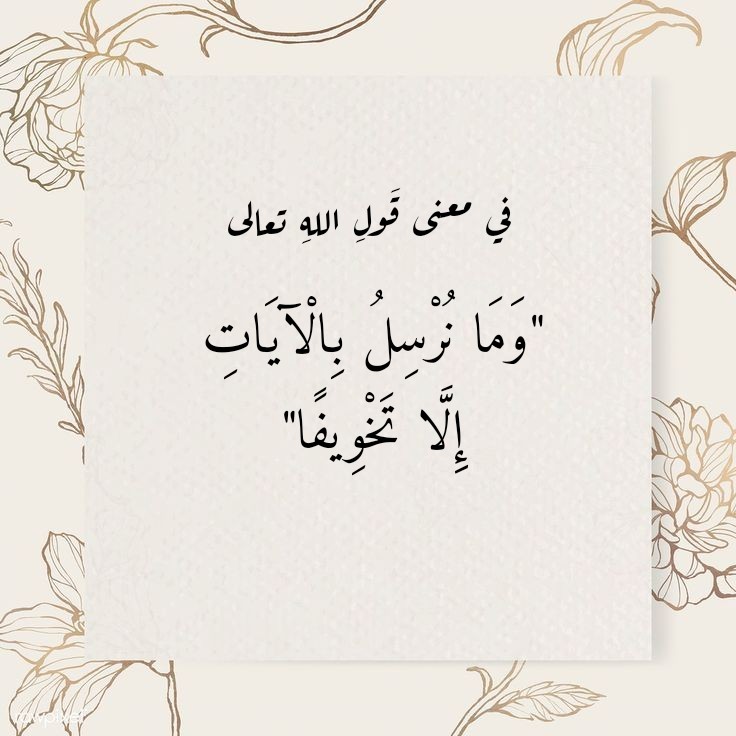 في معنى قَولِ اللهِ تعالى
"وَمَا نُرْسِلُ بِالْآيَاتِ
إِلَّا تَخْوِيفًا"
rawpixel